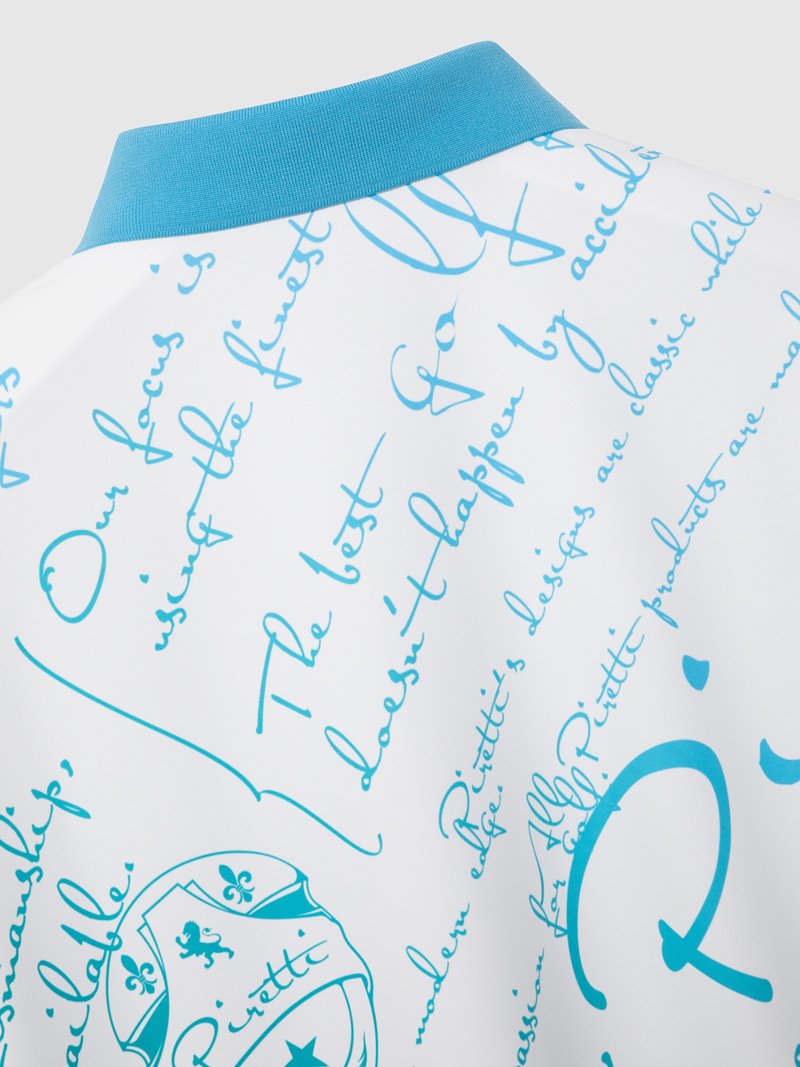 Our focus is
using the finest
The best Go
doesn't happen by accid
Piretti's designs are classic while
modern edge.
All Piretti products are ma
passion for golf.
smanship,
ailable.
Piretti